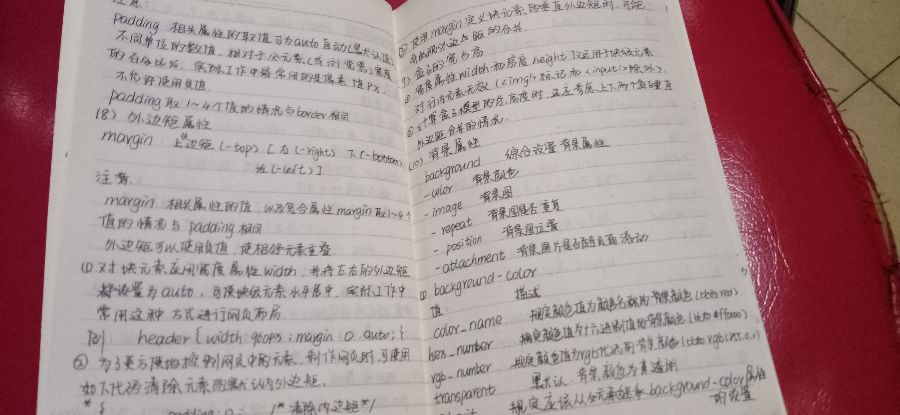 注意:
padding 相关属性的取值可为auto自动(默认值)
不同单位的数值、相对于父元素(或浏览器)宽度
的百分比%, 实际工作中最常用的是像素值px,
不允许使用负值
padding取1~4个值的情况与border相同
(8) 外边距属性
margin 上边距(-top) [右(-right) 下(-bottom)
左(-left)]
注意:
margin 相关属性的值, 以及复合属性margin取1~4个
值的情况与padding相同
外边距可以使用负值, 使相邻元素重叠
① 对块元素应用宽度属性width, 并将左右的外边距
都设置为auto, 可使块级元素水平居中, 实际工作中
常用这种方式进行网页布局
例 header{width:960px; margin:0 auto;}
② 为了更方便地控制网页中的元素, 制作网页时, 可使用
如下代码清除元素的默认内外边距.
*{
padding:0; /*清除内边距*/
使用margin定义块元素的垂直外边距时, 可能
会出现外边距的合并.
(9) 盒子的宽与高
① 宽度属性width和高度height仅适用于块级元素
对行内元素无效(<img/>标记和<input/>除外).
② 计算盒子模型的总高度时, 还应考虑上下两个盒子垂直
外边距合并的情况.
(10) 背景属性
background 综合设置背景属性
-color 背景颜色
-image 背景图
-repeat 背景图是否重复
-position 背景图位置
-attachment 背景图片是否随页面流动
① background-color
值: 描述
color_name 规定颜色值为颜色名称的背景颜色(比如red)
hex_number 规定颜色值为十六进制值的背景颜色(比如#ff0000)
rgb_number 规定颜色值为rgb代码的背景颜色(比如rgb(255,0,0))
transparent 默认. 背景颜色为透明
规定应该从父元素继承background-color属性
的设置